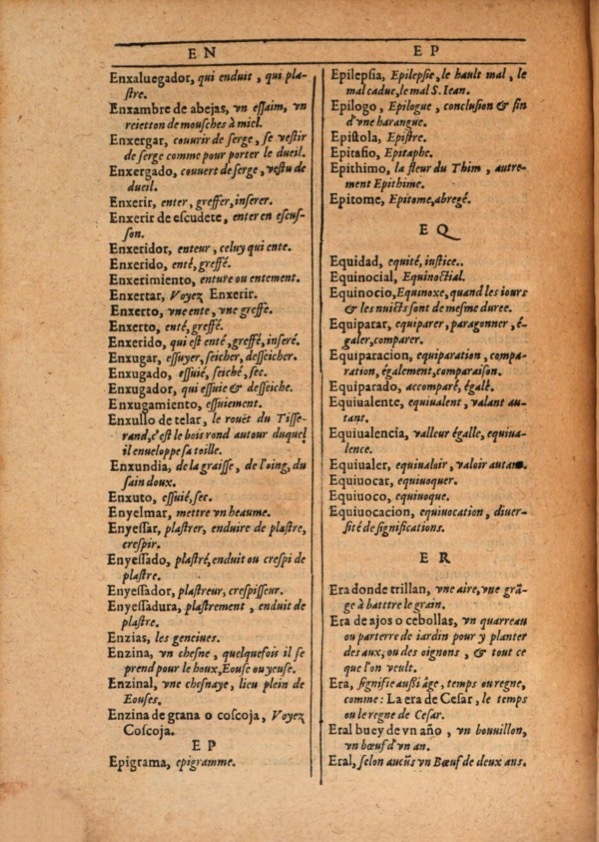 EN
EP
Enxaluegador, qui enduit, qui pla-
stre.
Enxambre de abejas, vn essaim, vn
reietton de mousches à miel.
Enxergar, couurir de serge, se vestir
de serge comme pour porter le dueil.
Enxergado, couuert de serge, vestu de
dueil.
Enxerir, enter, greffer, inserer.
Enxerir de escudete, enter en escus-
son.
Enxeridor, enteur, celuy qui ente.
Enxerido, enté, greffé.
Enxerimiento, enture ou entement.
Enxertar, Voyez Enxerir.
Enxerto, vne ente, vne greffe.
Enxerto, enté, greffé.
Enxerido, qui est enté, greffé, inseré.
Enxugar, essuyer, seicher, desseicher.
Enxugado, essuié, seiché, sec.
Enxugador, qui essuie & desseiche.
Enxugamiento, essuiement.
Enxullo de telar, le rouët du Tisse-
rand, c'est le bois rond autour duquel
il enueloppe sa toille.
Enxundia, de la graisse, de l'oing, du
sain doux.
Enxuto, essuié, sec.
Enyelmar, mettre vn heaume.
Enyessar, plastrer, enduire de plastre,
crespir.
Enyessado, plastré, enduit ou crespi de
plastre.
Enyessador, plastreur, crespisseur.
Enyessadura, plastrement, enduit de
plastre.
Enzias, les genciues.
Enzina, vn chesne, quelquefois il se
prend pour le houx, Eouse ou yeuse.
Enzinal, vne chesnaye, lieu plein de
Eouses.
Enzina de grana o coscoja, Voyez
Coscoja.
EP
Epigrama, epigramme.
Epilepsia, Epilepsie, le hault mal, le
mal caduc, le mal S. Iean.
Epilogo, Epilogue, conclusion & fin
d'vne harangue.
Epistola, Epistre.
Epitafio, Epitaphe.
Epithimo, la fleur du Thim, autre-
ment Epithime.
Epitome, Epitome, abregé.
EQ
Equidad, equité, iustice..
Equinocial, Equinoctial.
Equinocio, Equinoxe, quand les iours
& les nuicts sont de mesme duree.
Equiparar, equiparer, paragonner, é-
galer, comparer.
Equiparacion, equiparation, compa-
ration, également, comparaison.
Equiparado, accomparé, égalé.
Equiualente, equiualent, valant au-
tant.
Equiualencia, valleur égalle, equiua-
lence.
Equiualer, equiualoir, valoir autant.
Equiuocar, equiuoquer.
Equiuoco, equiuoque.
Equiuocacion, equiuocation, diuer-
sité de significations.
ER
Era donde trillan, vne aire, vne grã-
ge à batttre le grain.
Era de ajos o cebollas, vn quarreau
ou parterre de iardin pour y planter
des aux, ou des oignons, & tout ce
que l'on veult.
Era, signifie außi âge, temps ou regne,
comme: La era de Cesar, le temps
ou le regne de Cesar.
Eral buey de vn año, vn bouuillon,
vn bœuf d'vn an.
Eral, selon aucũs vn Bœuf de deux ans.